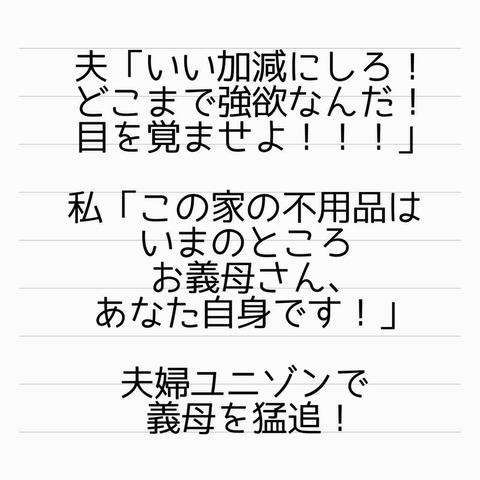 夫「いい加減にしろ！
どこまで強欲なんだ！
目を覚ませよ！！！」
私「この家の不用品は
いまのところ
お義母さん、
あなた自身です！」
夫婦ユニゾンで
義母を猛追！